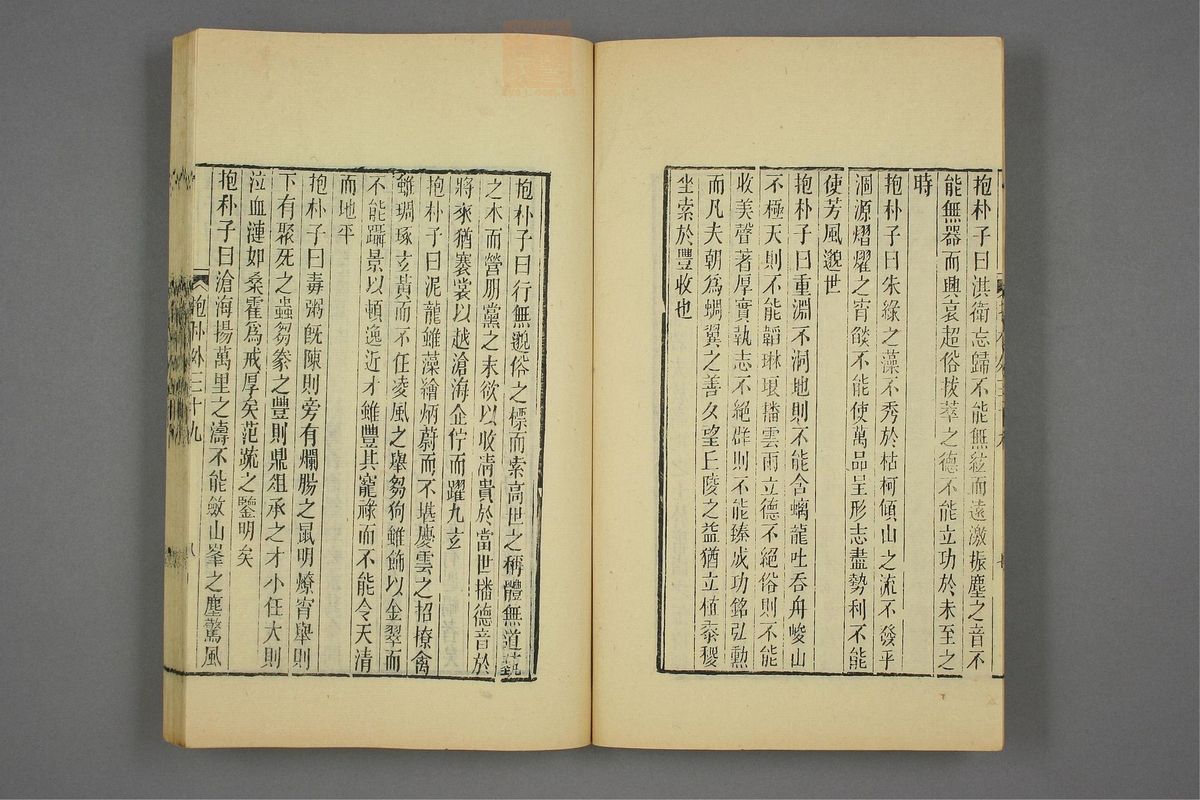 抱朴子曰淇衛忘歸不能無絃而遠激振塵之音不
能無器而興哀超俗拔萃之德不能立功於未至之
時
抱朴子曰朱綠之藻不秀於枯柯傾山之流不發乎
涸源熠燿之宵燄不能使萬品呈形志盡勢利不能
使芳風邈世
抱朴子曰重淵不洞地則不能含螭龍吐吞舟峻山
不極天則不能韜琳琅播雲雨立德不絕俗則不能
收美聲著厚實執志不絕群則不能臻成功銘弘勳
而凡夫朝為蜩翼之善夕望丘陵之益猶立植黍稷
坐索於豐收也
抱朴子曰行無邈俗之標而索高世之稱體無道藝
之本而營朋黨之末欲以收清貴於當世播德音於
將來猶褰裳以越滄海企佇而躍九玄
抱朴子曰泥龍雖藻繪炳蔚而不堪慶雲之招撩禽
雖琱琢玄黃而不任凌風之舉芻狗雖飾以金翠而
不能躡景以頓逸近才雖豐其寵祿而不能令天清
而地平
抱朴子曰毒粥旣陳則旁有爛腸之鼠明燎宵舉則
下有聚死之蟲芻豢之豐則鼎俎承之才小任大則
泣血漣如桑霍為戒厚矣范疏之鑒明矣
抱朴子曰滄海揚萬里之濤不能斂山峯之塵驚風
抱朴外三十九
八